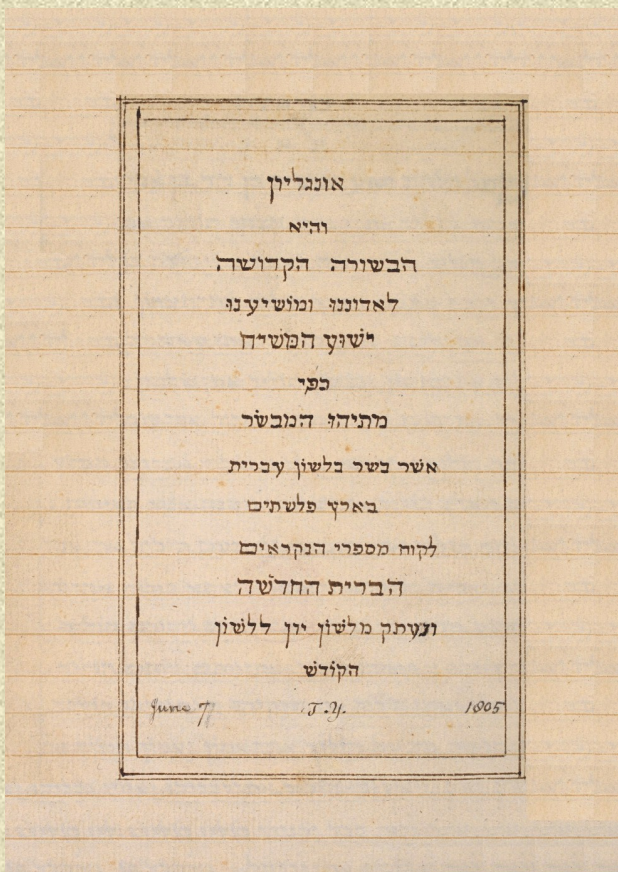 אונגליון
והיא
הבשורה הקדושה
לאדוננוּ ומוֹשׁיענוּ
ישׁוּע המשׁיח
כפי
מתיהוּ המבשׂר
אשׁר בשר בלשׁוֹן עברית
בארץ פלשתים
לקוח מספרי הנקראים
הברית החדשׁה
ונעתק מלשׁוֹן יון ללשׁוֹן
הקוֹדשׁ
June 7 T.Y. 1805